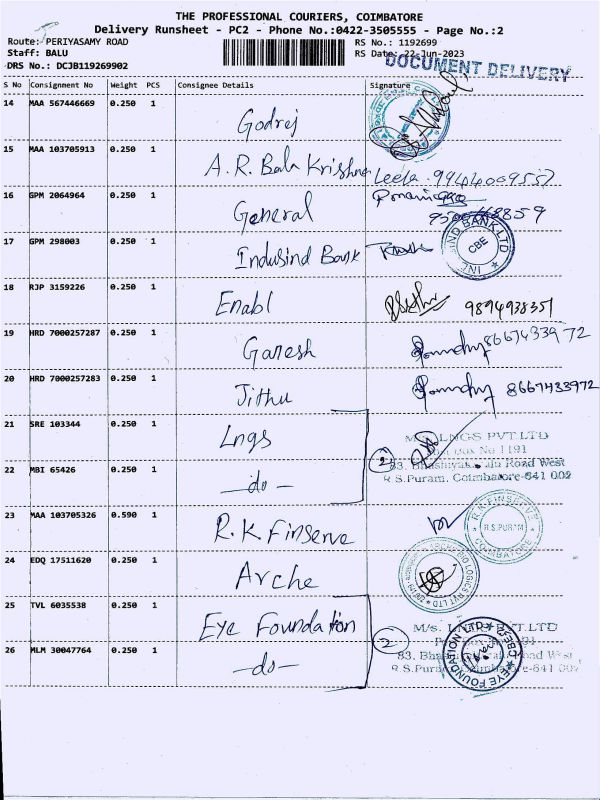 THE PROFESSIONAL COURIERS, COIMBATORE
Delivery Runsheet - PC2 - Phone No.:0422-3505555 - Page No.:2
Route: PERIYASAMY ROAD RS No.: 1192699
Staff: BALU RS Date: 22-Jun-2023
DRS No.: DCJB119269902 DOCUMENT DELIVERY
S No Consignment No Weight PCS Consignee Details Signature
14 MAA 567446669 0.250 1 Godrej
15 MAA 103705913 0.250 1 A.R. Bala Krishna Leela. 9944009557
16 GPM 2064964 0.250 1 General
17 GPM 298003 0.250 1 Indusind Bank IND BANK LTD CBE
18 RJP 3159226 0.250 1 Enabl 9894938357
19 HRD 7000257287 0.250 1 Ganesh 8667433972
20 HRD 7000257283 0.250 1 Jithu 8667433972
21 SRE 103344 0.250 1 Lngs M/s. LNGS PVT LTD
No 1191
22 MBI 65426 0.250 1 -do- 2 83. Road West
R.S.Puram. Coimbatore-641 002
23 MAA 103705326 0.590 1 R.K Finserve R.S.PURAM COIMBATORE
24 EDQ 17511620 0.250 1 Arche
25 TVL 6035538 0.250 1 Eye Foundation M/s. PVT.LTD
26 MLM 30047764 0.250 1 -do- 2 83. Road West
R.S.Puram -641 002
EYE FOUNDATION LTD